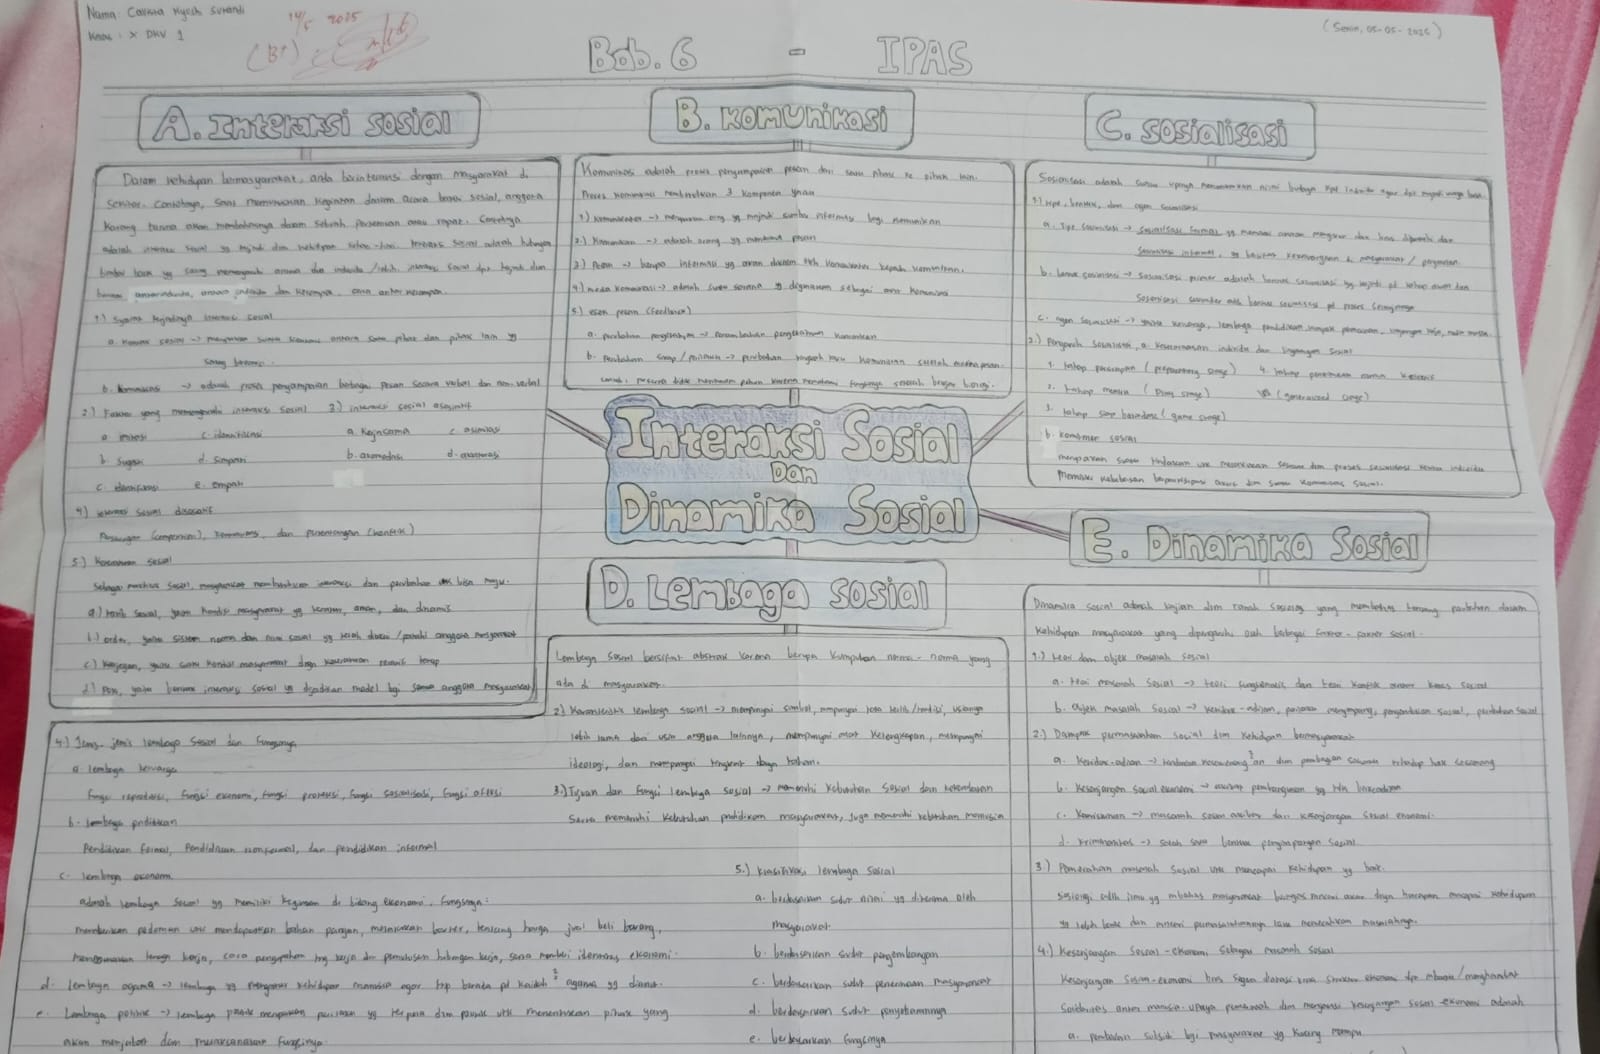 Nama:
Kelas : X DKV 1
14/5 2025
(B+)
(Senin, 05-05-2025)
Bab. 6 - IPAS
A. Interaksi sosial
Dalam kehidupan bermasyarakat, anda berinteraksi dengan masyarakat di
sekitar. Contohnya, saat merencanakan kegiatan dalam acara bakti sosial, anggota
karang taruna akan membahasnya dalam sebuah pertemuan atau rapat.
adalah interaksi sosial yg terjadi dlm kehidupan sehari-hari. Interaksi sosial adalah hubungan
timbal balik yg saling
antarindividu, antara individu dan kelompok, atau antar kelompok.
1.) Syarat terjadinya interaksi sosial
a. Kontak sosial -> merupakan suatu antara satu pihak dan pihak lain yg
saling bertemu.
b. Komunikasi -> adalah proses penyampaian berbagai pesan secara verbal dan non-verbal
2.) Faktor yang memengaruhi interaksi sosial 3.) interaksi sosial asosiatif
a. imitasi c. identifikasi a. Kerjasama c. asimilasi
b. Sugesti d. Simpati b. akomodasi d. akulturasi
c. identifikasi e. empati
4.) interaksi sosial disosiatif
Persaingan (competition), kontravensi, dan pertentangan (konflik)
5.) Keteraturan sosial
Sebagai makhluk sosial, masyarakat membutuhkan interaksi dan perubahan utk bisa maju.
a.) tertib sosial, yaitu kondisi masyarakat yg teratur, aman, dan dinamis
b.) order, yaitu sistem norma dan nilai sosial yg telah diakui/patuhi anggota masyarakat
c.) Keajegan, yaitu suatu kondisi masyarakat dngn keteraturan tetap
d.) Pola, yaitu bentuk interaksi sosial yg dijadikan model bgi semua anggota masyarakat
B. Komunikasi
Komunikasi adalah proses penyampaian pesan dari satu pihak ke pihak lain.
Proses komunikasi membutuhkan 3 komponen yaitu
1.) Komunikator -> merupakan orng yg mnjadi sumber informasi bagi komunikan
2.) Komunikan -> adalah orang yg menerima pesan
3.) Pesan -> berupa informasi yg akan oleh komunikator kepada komunikan.
4.) media komunikasi -> adalah suatu sarana yg digunakan sebagai alat komunikasi
5.) efek pesan (feedback)
a. perubahan pengetahuan -> Penambahan pengetahuan komunikan
b. Perubahan sikap/perilaku -> perubahan komunikan setelah
contoh, peserta didik pohon karena memahami fungsinya setelah belajar biologi.
C. Sosialisasi
Sosialisasi adalah suatu upaya menanamkan nilai budaya kpd individu agar dpt menjadi warga
1.) tipe, bentuk, dan agen sosialisasi
a. Tipe sosialisasi -> sosialisasi formal yg
Sosialisasi informal, yg bersifat kekeluargaan &
b. bentuk sosialisasi -> sosialisasi primer adalah bentuk sosialisasi yg terjadi pd tahap awal dan
Sosialisasi sekunder adlh bentuk sosialisasi pd proses selanjutnya
c. agen sosialisasi -> yaitu keluarga, lembaga pendidikan, lingkungan kerja, media massa.
2.) Pengaruh Sosialisasi, a. Keseimbangan individu dan lingkungan sosial
1. tahap persiapan (preparatory stage) 4. tahap penerimaan norma kolektif
2. tahap meniru (Play stage) (generalized stage)
3. tahap siap bertindak (game stage)
b. kontrol sosial
merupakan suatu tindakan utk meneruskan dlm proses sosialisasi karena individu
memiliki kebebasan berpartisipasi aktif dlm suatu komunitas sosial.
Interaksi Sosial
Dan
Dinamika Sosial
D. Lembaga sosial
Lembaga sosial bersifat abstrak karena berupa kumpulan norma-norma yang
ada di masyarakat.
2.) Karakteristik lembaga sosial -> mempunyai simbol, mempunyai tata tertib/tradisi, usianya
lebih lama dari usia anggota lainnya, mempunyai alat kelengkapan, mempunyai
ideologi, dan mempunyai tingkat daya tahan.
3.) Tujuan dan fungsi lembaga sosial -> memenuhi kebutuhan sosial dan kekerabatan
Serta memenuhi kebutuhan pendidikan masyarakat, juga memenuhi kebutuhan manusia
4.) Jenis-jenis lembaga sosial dan fungsinya
a. lembaga keluarga
fungsi reproduksi, fungsi ekonomi, fungsi proteksi, fungsi sosialisasi, fungsi afeksi
b. lembaga pndidikan
Pendidikan formal, Pendidikan nonformal, dan pendidikan informal
c. lembaga ekonomi
adalah lembaga sosial yg memiliki kegiatan di bidang ekonomi. Fungsinya:
memberikan pedoman utk mendapatkan bahan pangan, melakukan barter, tentang harga jual beli barang,
menggunakan tenaga kerja, cara pengupahan tng kerja dn pemutusan hubungan kerja, serta memberi identitas ekonomi.
d. lembaga agama -> lembaga yg mengatur kehidupan manusia agar ttp berada pd kaidah² agama yg dianut.
e. Lembaga politik -> lembaga politik merupakan peraturan yg dlm politik utk menentukan pihak yang
akan menjabat dlm melaksanakan fungsinya.
5.) Klasifikasi lembaga sosial
a. berdasarkan sudut nilai yg diterima oleh
masyarakat
b. berdasarkan sudut pengembangan
c. berdasarkan sudut penerimaan masyarakat
d. berdasarkan sudut penyebarannya
e. berdasarkan fungsinya
E. Dinamika Sosial
Dinamika sosial adalah kajian dlm ranah sosiologi yang membahas tentang perubahan dalam
kehidupan masyarakat yang dipengaruhi oleh berbagai faktor-faktor sosial.
1.) teori dan objek masalah sosial
a. teori masalah sosial -> teori fungsionalis dan teori konflik kelas sosial
b. objek masalah sosial -> ketidak-adilan, perilaku menyimpang, pengendalian sosial, perubahan sosial
2.) Dampak permasalahan sosial dlm kehidupan bermasyarakat
a. Ketidak-adilan -> tindakan kesewenang²an dlm pembagian sesuatu terhadap hak seseorang
b. Kesenjangan sosial ekonomi -> akibat pembangunan yg tdk
c. Kemiskinan -> masalah sosial akibat dari kesenjangan sosial ekonomi.
d. kriminalitas -> salah satu bentuk penyimpangan sosial.
3.) Pemecahan masalah sosial utk mencapai kehidupan yg baik.
sosiologi adlh ilmu yg mbahas masyarakat dngn harapan kehidupan
yg lebih baik dan mencari permasalahannya lalu memecahkan masalahnya.
4.) Kesenjangan sosial-ekonomi sebagai masalah sosial
Kesenjangan sosial-ekonomi hrs segera diatasi krna struktur ekonomi dpt mbantu/menghambat
Solidaritas antar manusia. upaya pemerintah dlm mengatasi kesenjangan sosial-ekonomi adalah
a. pemberian subsidi bgi masyarakat yg kurang mampu